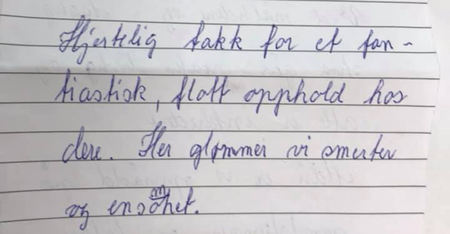 Hjertelig takk for et fan-
tiastisk, flott opphold hos
dere. Her glømmer vi smerter
og ensomhet.